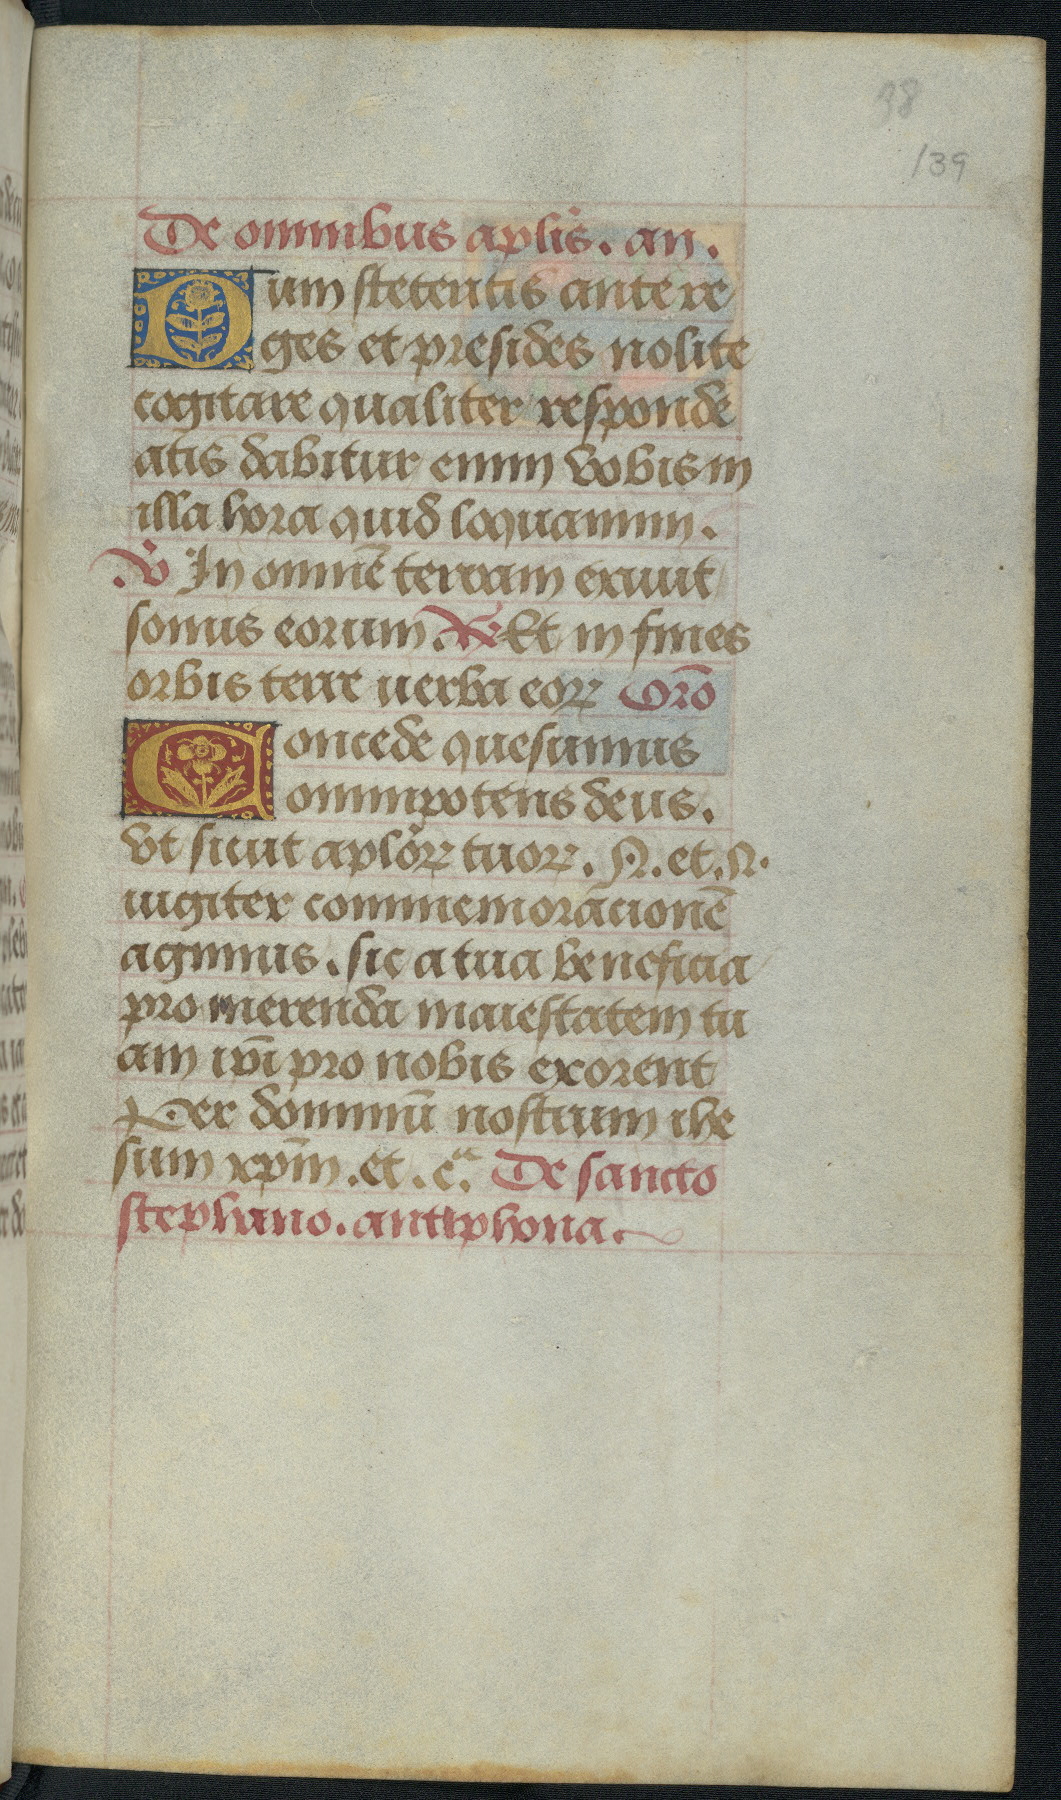 98
139
De omnibus aplis. an.
Dum steteritis ante re
ges et presides nolite
cogitare qualiter responde
atis dabitur enim vobis in
illa hora quid loquamini.
V In omnē terram exiuit
sonus eorum. R Et in fines
orbis terre uerba eoꝝ Orō
Concede quesumus
omnipotens deus.
vt sicut aploꝝ tuoꝝ. N. et. N.
iugiter commemoracionē
agimus. sic a tua beneficia
promerenda maiestatem tu
am ip̄i pro nobis exorent
Per dominū nostrum ihe
sum xp̄m. et. cᵃ. De sancto
stephano. antiphona.